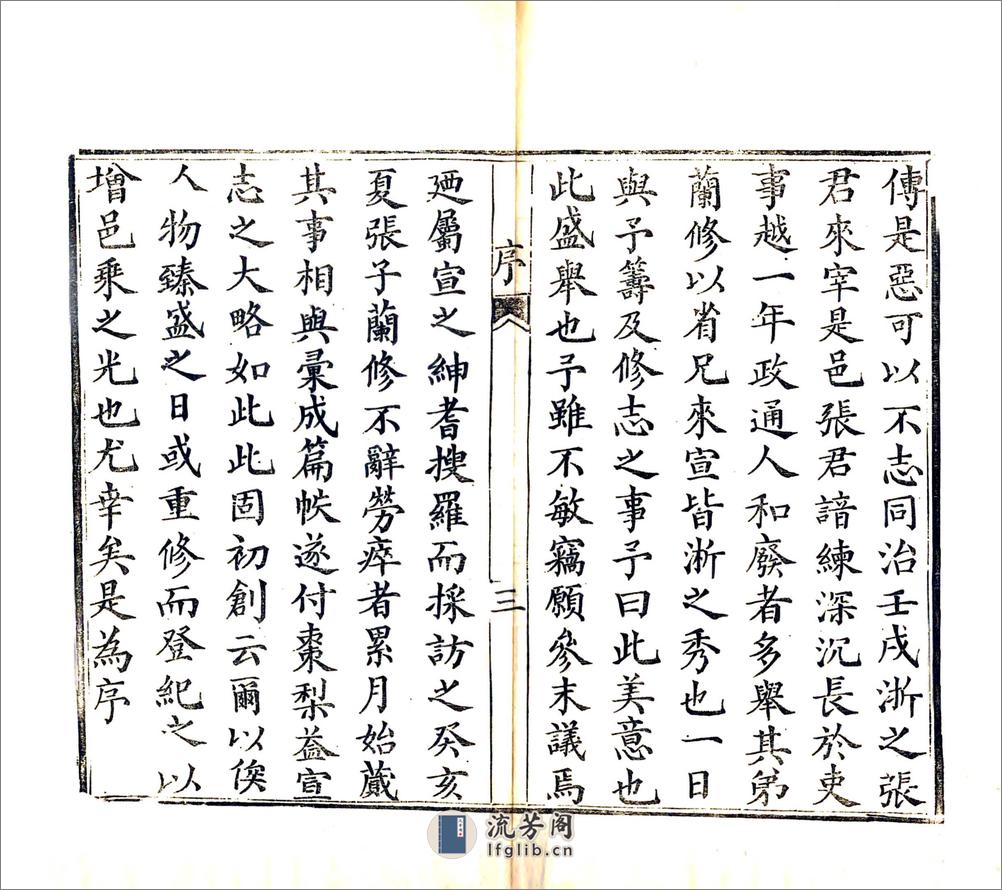 傳是惡可以不志同治壬戌浙之張
君來宰是邑張君諳練深沉長於吏
事越一年政通人和廢者多舉其弟
蘭修以省兄來宣皆浙之秀也一日
與予籌及修志之事予曰此美意也
此盛舉也予雖不敏竊願參末議焉
序
三
廼屬宣之紳耆搜羅而採訪之癸亥
夏張子蘭修不辭勞瘁者累月始蕆
其事相與彙成篇帙遂付棗梨益宣
志之大略如此此固初創云爾以俟
人物臻盛之日或重修而登紀之以
增邑乘之光也尤幸矣是為序
流芳阁
lfglib.cn